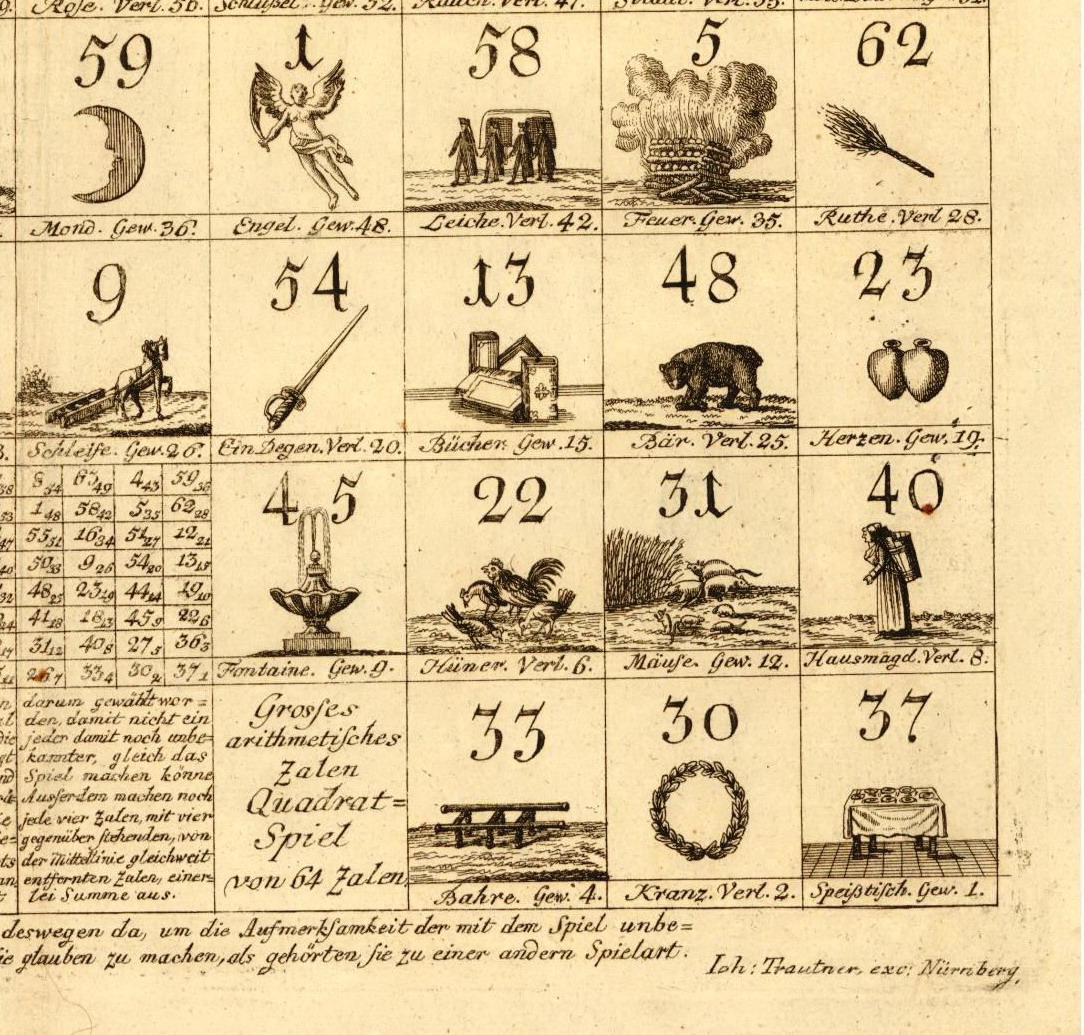 Rose. Verl. 56. Schlüßel. Gew. 52. Rauch. Verl. 47.
59 1 58 5 62
Mond. Gew. 36. Engel. Gew. 48. Leiche. Verl. 42. Feuer. Gew. 35. Ruthe. Verl 28.
9 54 13 48 23
Schleife. Gew. 26. Ein Degen. Verl. 20. Bücher. Gew. 15. Bär. Verl. 25. Herzen. Gew. 19.
45 22 31 40
8 54 63 49 4 43 59 36
1 48 58 42 5 35 62 28
55 51 16 34 51 27 12 21
50 33 9 26 54 20 13 15
48 25 23 19 44 14 19 10
41 18 18 13 45 9 22 6
31 12 40 8 27 5 36 3
26 7 33 4 30 2 37 1
Fontaine. Gew. 9. Hüner. Verl. 6. Mäuse. Gew. 12. Hausmagd. Verl. 8.
darum gewählt wor=
den, damit nicht ein
jeder damit noch unbe=
kannter, gleich das
Spiel machen könne
Ausserdem machen noch
jede vier Zalen, mit vier
gegenüber stehenden, von
der Mittellinie gleichweit
entfernten Zalen, einer=
lei Summe aus.
Grosses
arithmetisches
Zalen
Quadrat=
Spiel
von 64 Zalen.
33 30 37
Bahre. Gew. 4. Kranz. Verl. 2. Speißtisch. Gew. 1.
deswegen da, um die Aufmerksamkeit der mit dem Spiel unbe=
glauben zu machen, als gehörten sie zu einer andern Spielart.
Joh: Trautner, exc: Nürnberg.